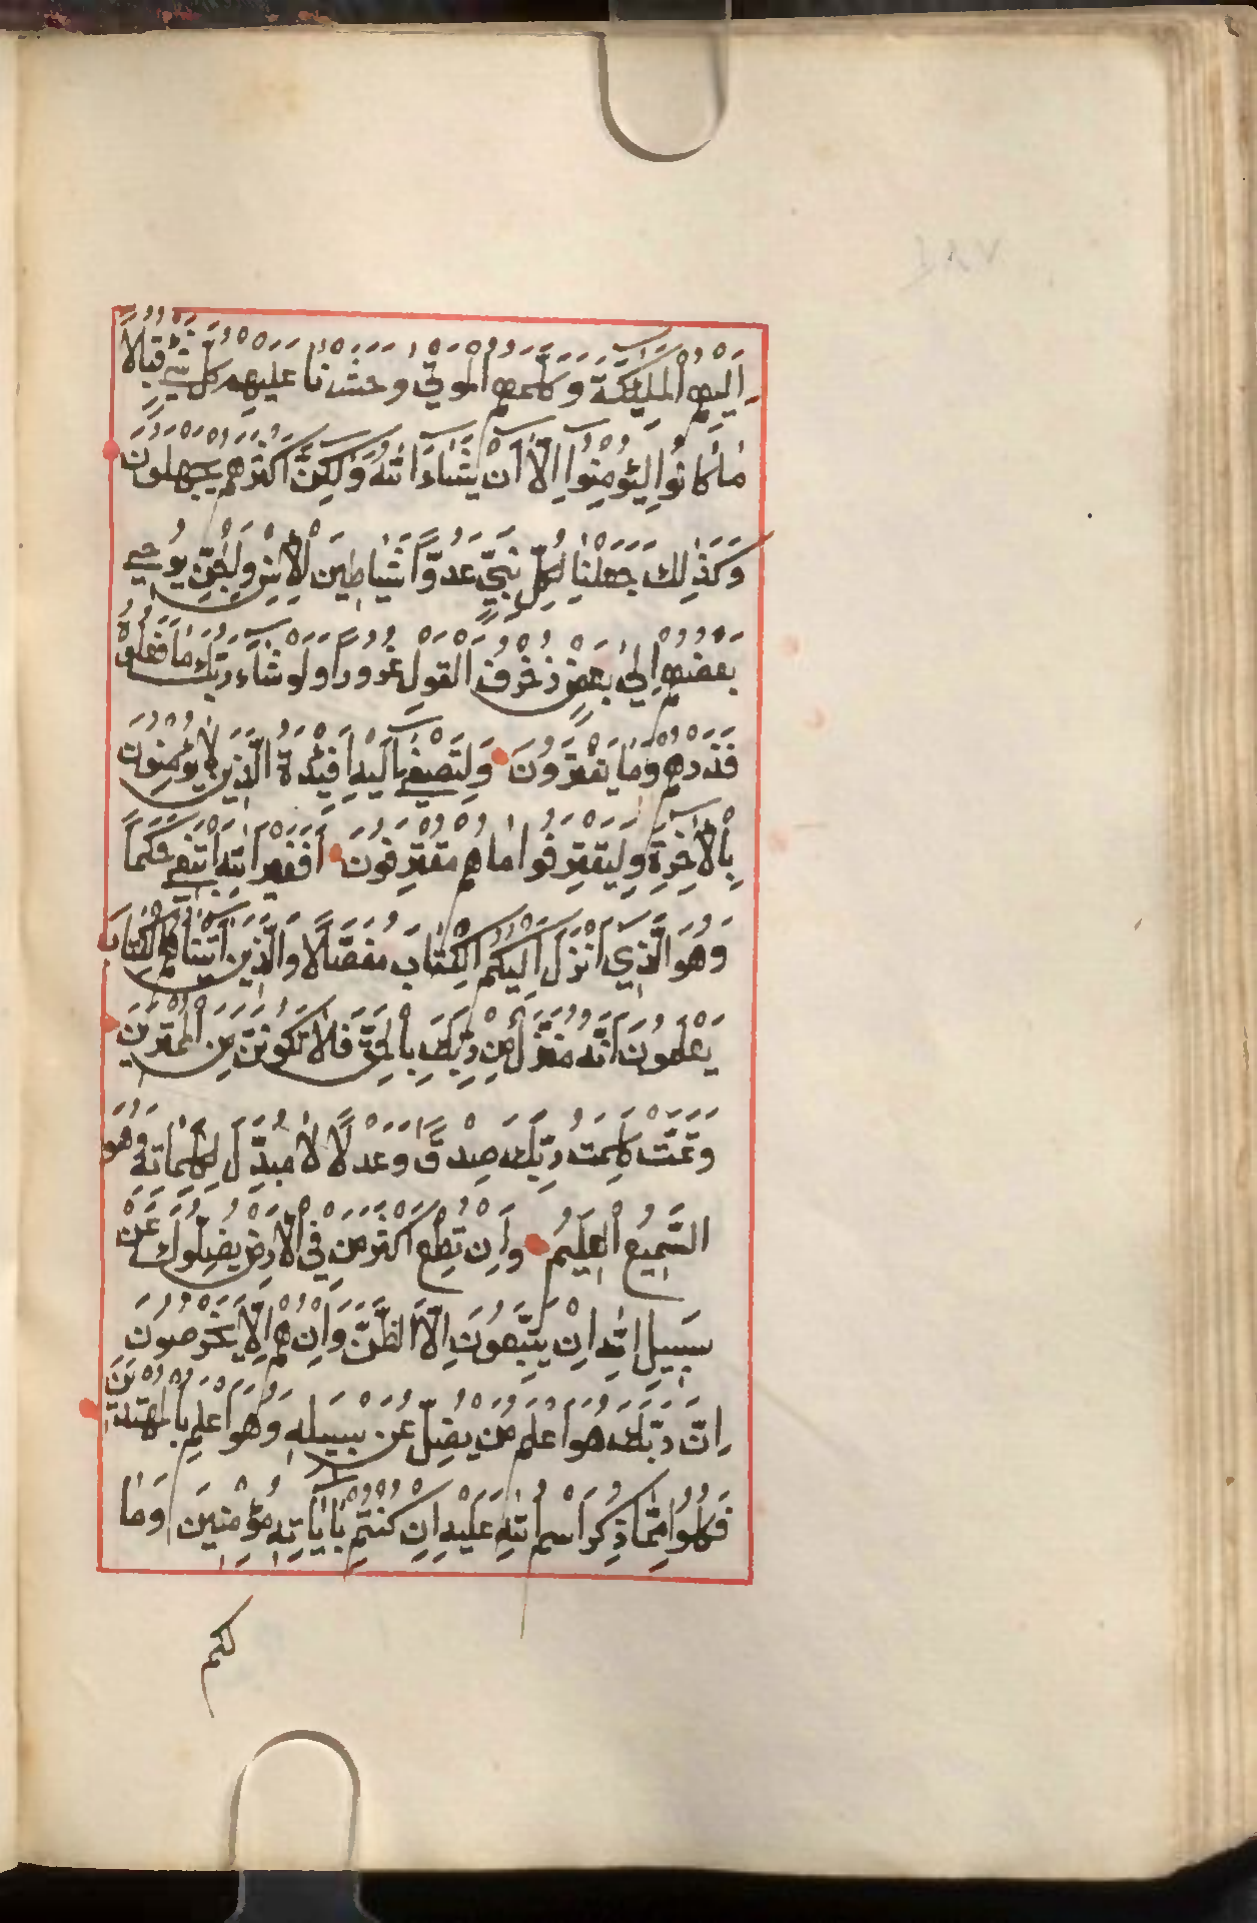 اِلَيْهِمُ الْمَلٰٓئِكَةَ وَكَلَّمَهُمُ الْمَوْتٰي وَحَشَرْنَا عَلَيْهِمْ كُلَّ شَيْءٍ قُبُلًا
مَا كَانُوا لِيُؤْمِنُوٓا اِلَّآ اَنْ يَشَآءَ اللّٰهُ وَلٰكِنَّ اَكْثَرَهُمْ يَجْهَلُونَ
وَكَذٰلِكَ جَعَلْنَا لِكُلِّ نَبِيٍّ عَدُوًّا شَيَاطِينَ الْاِنْسِ وَالْجِنِّ يُوحِي
بَعْضُهُمْ اِلٰي بَعْضٍ زُخْرُفَ الْقَوْلِ غُرُورًا وَلَوْ شَآءَ رَبُّكَ مَا فَعَلُوهُ
فَذَرْهُمْ وَمَا يَفْتَرُونَ وَلِتَصْغٰٓي اِلَيْهِ اَفْئِدَةُ الَّذِينَ لَا يُؤْمِنُونَ
بِالْاٰخِرَةِ وَلِيَرْضَوْهُ وَلِيَقْتَرِفُوا مَا هُمْ مُقْتَرِفُونَ اَفَغَيْرَ اللّٰهِ اَبْتَغِي حَكَمًا
وَهُوَ الَّذِٓي اَنْزَلَ اِلَيْكُمُ الْكِتَابَ مُفَصَّلًا وَالَّذِينَ اٰتَيْنَاهُمُ الْكِتَابَ
يَعْلَمُونَ اَنَّهُ مُنَزَّلٌ مِنْ رَبِّكَ بِالْحَقِّ فَلَا تَكُونَنَّ مِنَ الْمُمْتَرِينَ
وَتَمَّتْ كَلِمَتُ رَبِّكَ صِدْقًا وَعَدْلًا لَا مُبَدِّلَ لِكَلِمَاتِهِ وَهُوَ
السَّمِيعُ الْعَلِيمُ وَاِنْ تُطِعْ اَكْثَرَ مَنْ فِي الْاَرْضِ يُضِلُّوكَ عَنْ
سَبِيلِ اللّٰهِ اِنْ يَتَّبِعُونَ اِلَّا الظَّنَّ وَاِنْ هُمْ اِلَّا يَخْرُصُونَ
اِنَّ رَبَّكَ هُوَ اَعْلَمُ مَنْ يَضِلُّ عَنْ سَبِيلِهِ وَهُوَ اَعْلَمُ بِالْمُهْتَدِينَ
فَكُلُوا مِمَّا ذُكِرَ اسْمُ اللّٰهِ عَلَيْهِ اِنْ كُنْتُمْ بِاٰيَاتِهِ مُؤْمِنِينَ وَمَا
لكم